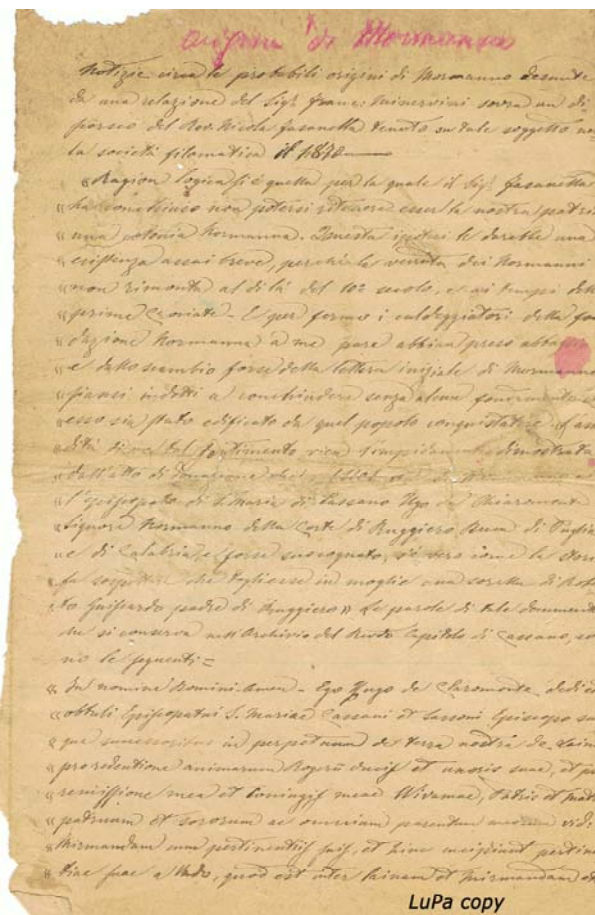 Origine di Mormanno
Notizie circa le probabili origini di Mormanno desunte
da una relazione del Sigr Franc: Minervini sovra un di
scorso del Rev. Nicola Fasanella tenuto su tale soggetto nel
la società filomatica il 1870
« Ragion logica si è quella per la quale il Sigr Fasanella
« ha conchiuso non potersi ritenere esser la nostra patria
« una colonia Normanna. Questa ipotesi le darebbe una
« esistenza assai breve, perchè la venuta dei Normanni
« non rimonta al di là del 10° secolo, e ai tempi delle
« prime Crociate - E per fermo i caldeggiatori della fon
« dazione Normanna a me pare abbian preso abbaglio
« e dallo scambio forse della lettera iniziale di Mormanno
« siansi indotti a conchiudere senza alcun fondamento
« esso sia stato edificato da quel popolo conquistatore
« dità di tal sentimento vien dimostrata
« dall'atto di donazione
« l'Episcopato di S. Maria di Cassano Ugo di Chiaromonte
« Signore Normanno della Corte di Ruggiero Duca di Puglia
« e di Calabria, e forse suo cognato, s'è vero come le storie
« fa sospettare che togliesse in moglie una sorella di Rober
« to Guiscardo padre di Ruggiero » Le parole di tale documento
che si conserva nell'Archivio del Revdo Capitolo di Cassano, so
no le seguenti =
« In nomine Domini Amen - Ego Hugo de Claromonte dedi et
« obtuli Episcopatui S. Mariae Cassani et Sassoni Episcopo su
« que successoribus in perpetuum de terra nostra de Laino
« pro redentione animarum Rogerii ducis et uxoris suae, et pro
« remissione mea et Coniugis meae Wivamae, Patris et Matris
« patruum et sororum ac omnium parentum meorum vid:
« Mirmandam cum pertinentiis suis, et hinc incipiunt pertinen
« tiae suae a Vado, quod est inter Lainum et Mirmandam et
LuPa copy